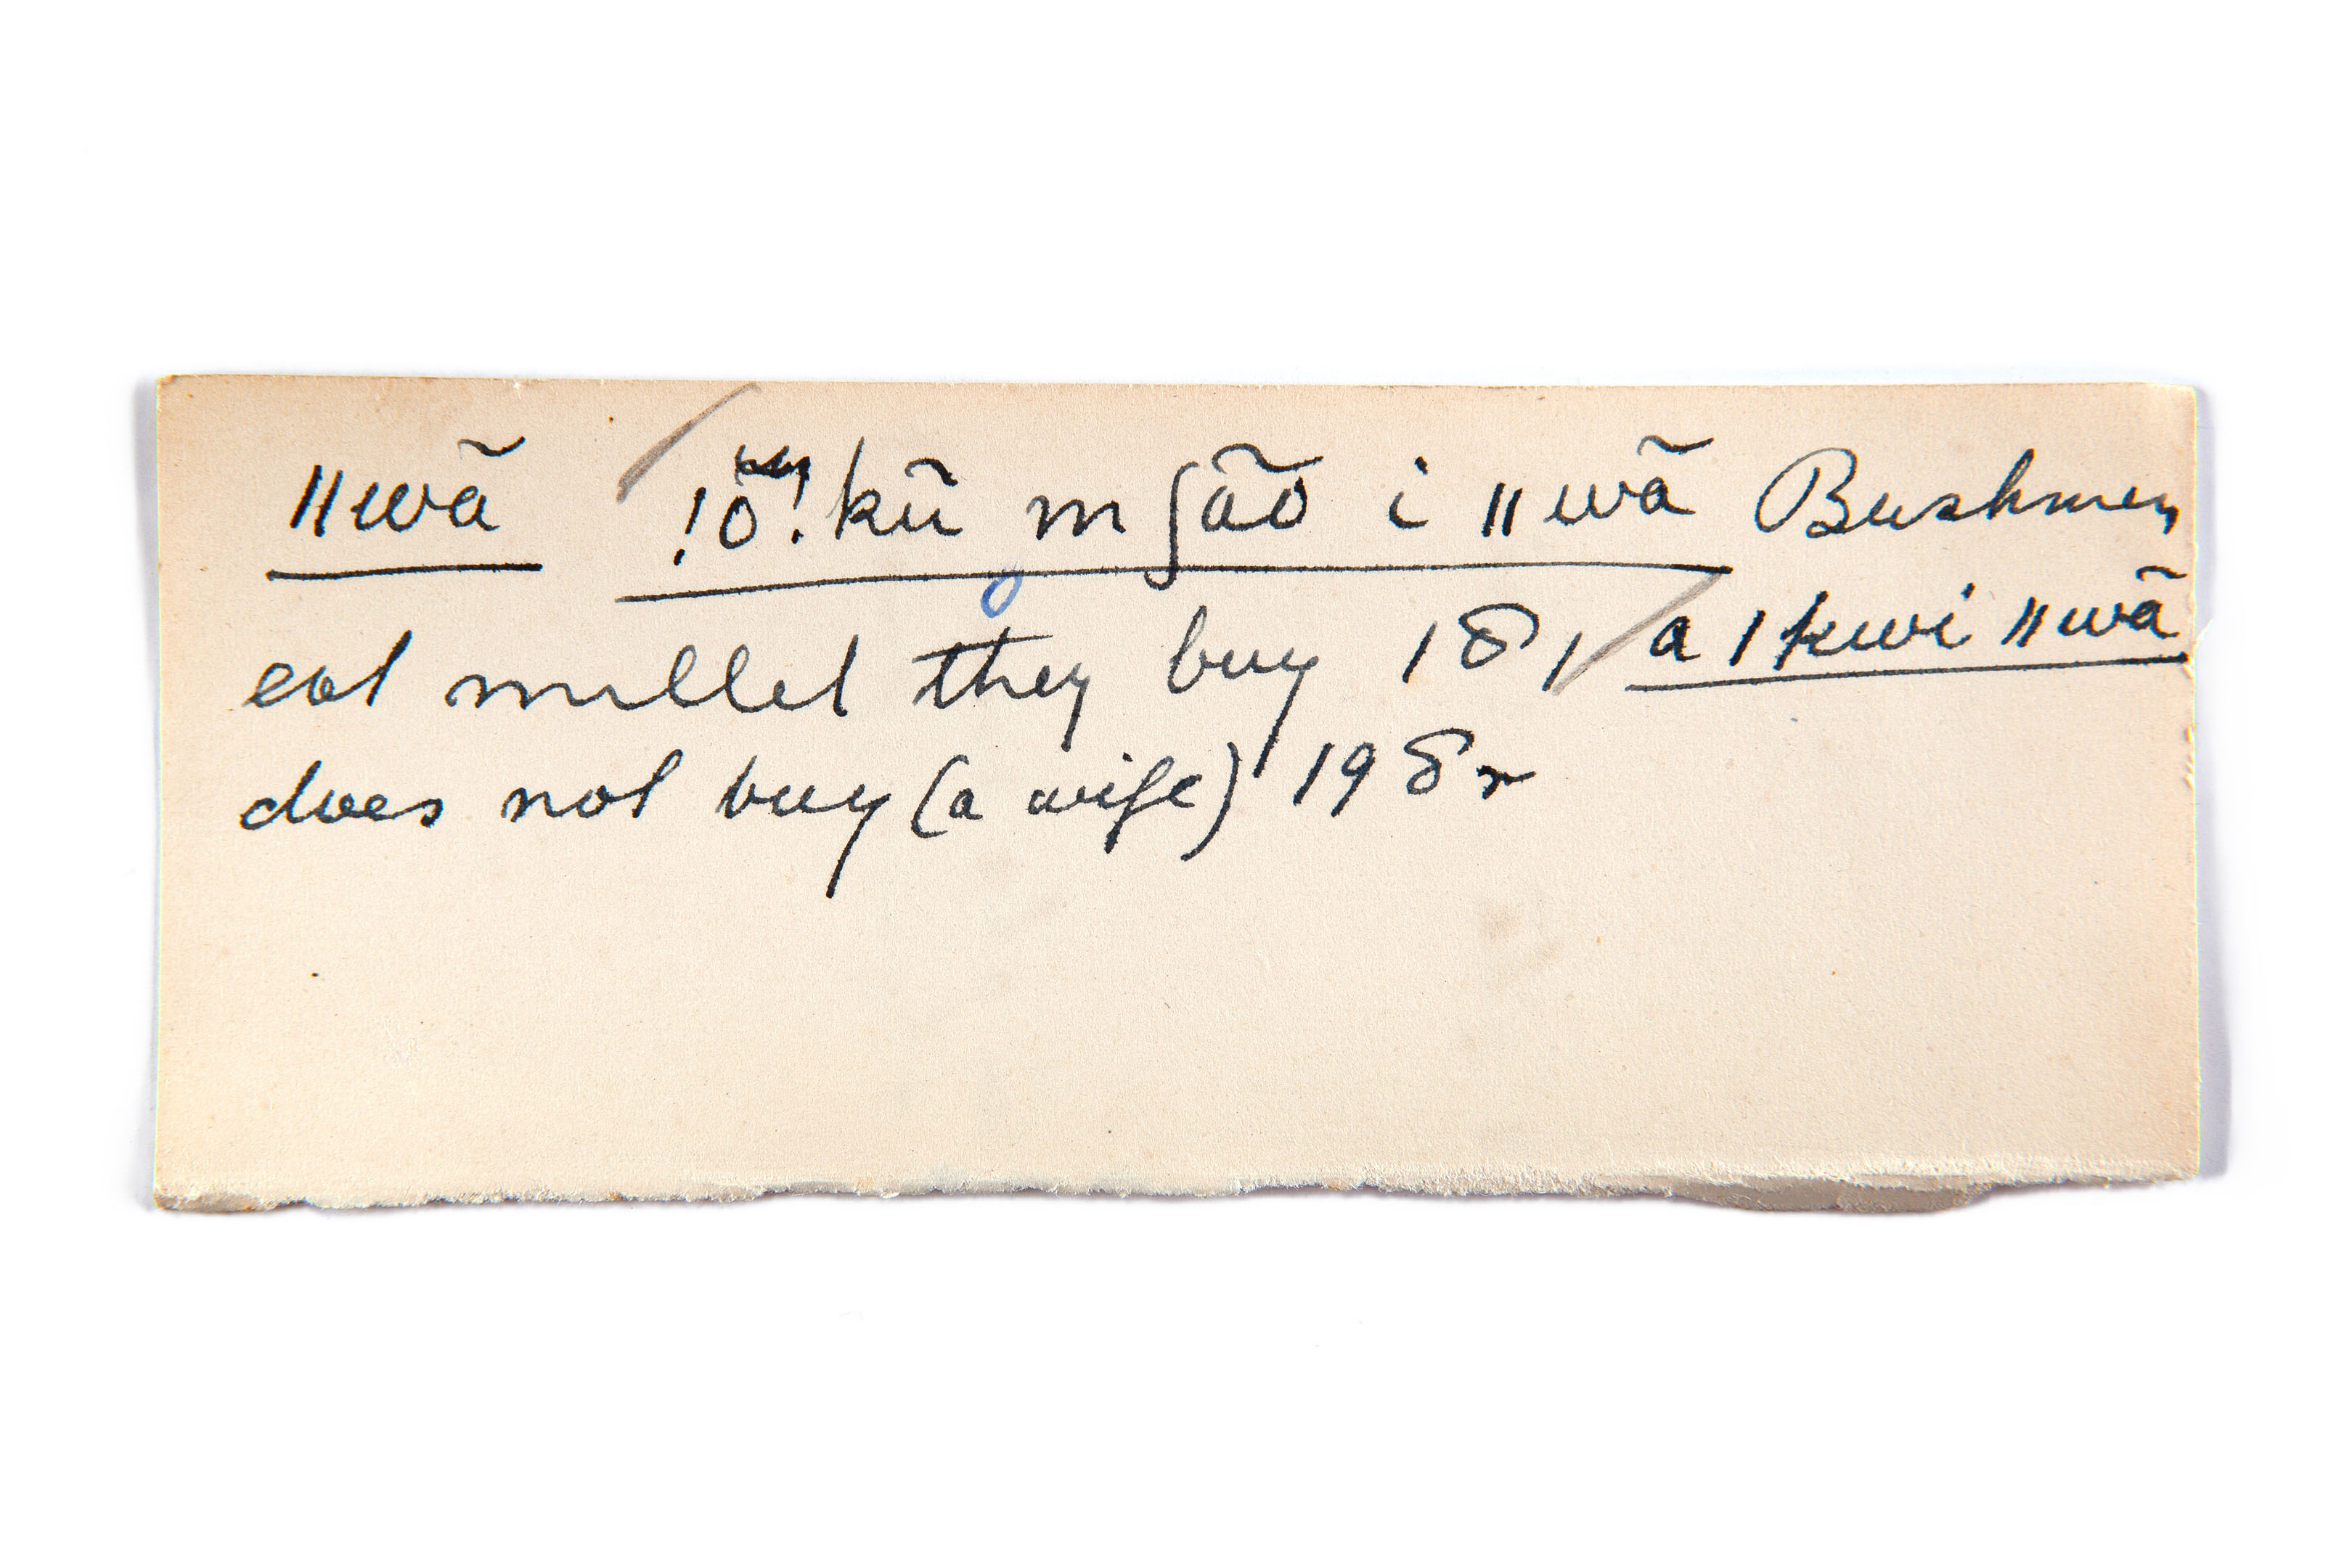 ǁwã !ȍ!kũ m ʃão i ǁwã Bushmen
eat millet they buy 18, a ǀkwi ǁwã
does not buy (a wife) 198r